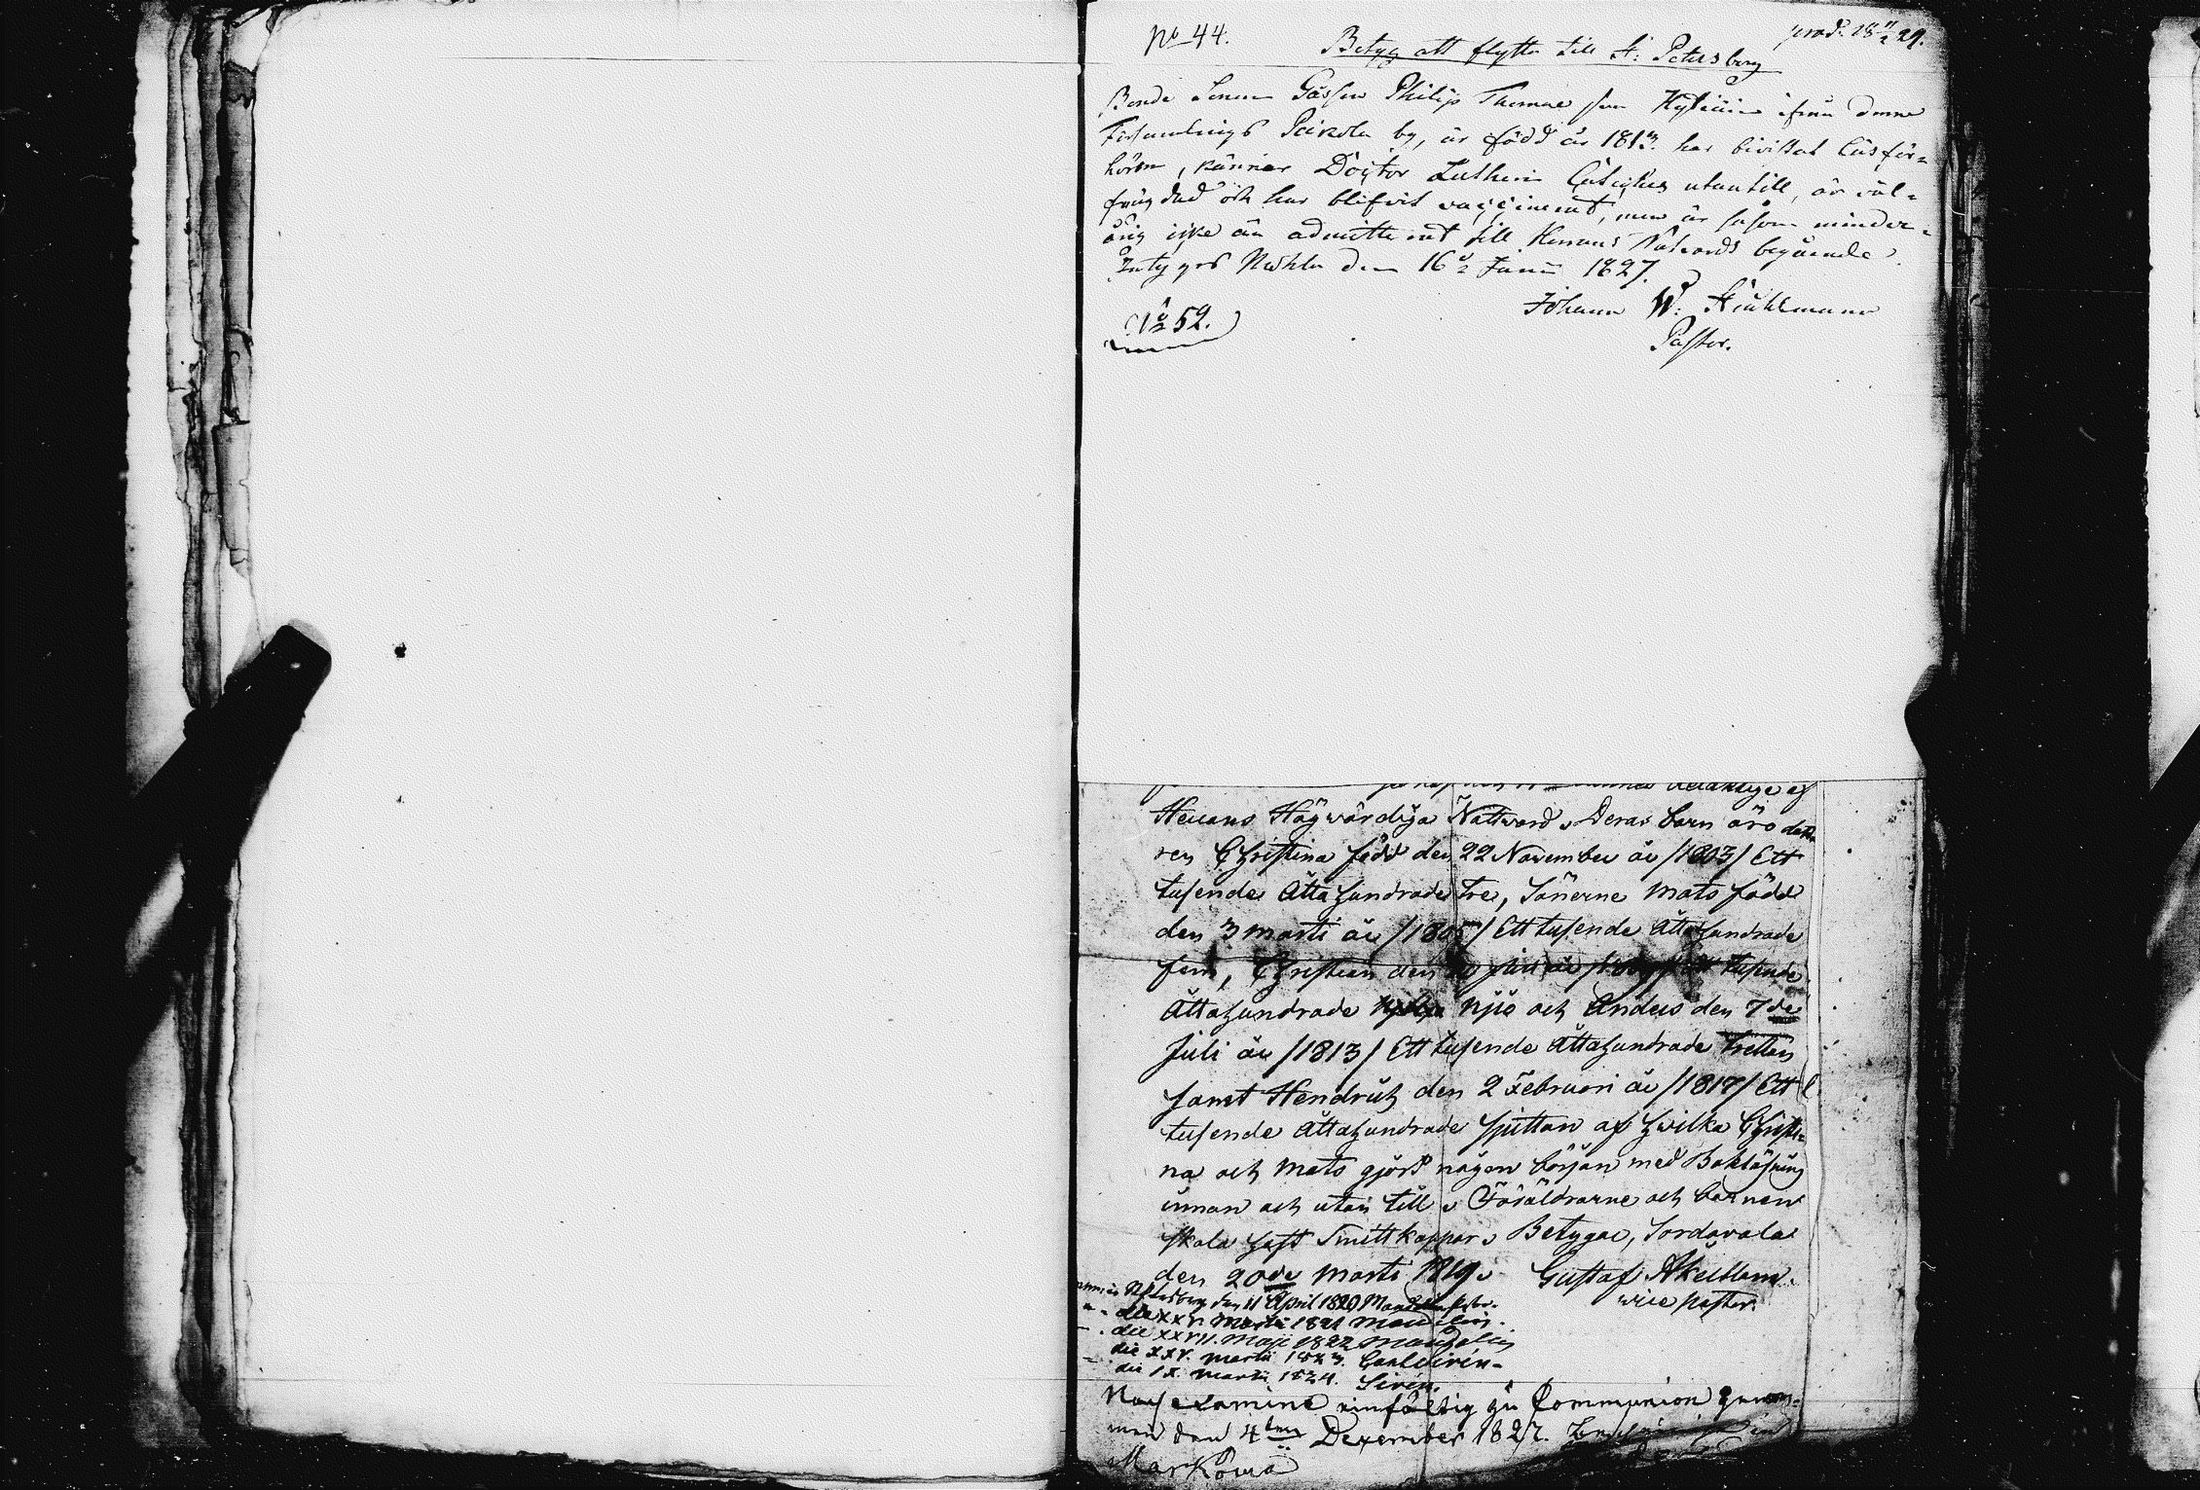 No 44.
prod. 18 11/2 29.
Betyg att flytta till St: Petersburg
Bonde Sonen Gåssen Philip Thomae son Hytiäin ifrån denne
Församlings Peixola by, är född år 1813. har bivistat Läsför=
hören, känner Doctor Lutheri Catichis utantill, är väl=
frägdad och har blifvit vaccinerad, men är såsom minder=
årig icke än admitterad till Herrans Nattvards begående.
Intygas Mohla den 16 Junii 1827.
Johann W. Stråhlmann
Pastor.
No 52.
delaktige af
Herrans Högwördiga Nattward. Deras barn äro dott=
ren Christina född den 22 November år /1803/ Ett
tusende Åttahundrade tre, Sönerne Mats född
den 3 Marti år /1805/ Ett tusende Åttahundrade
fem, Christian den år tusende
Åttahundrade Nijo och Anders den 7de
Juli år /1813/ Ett tusende Åttahundrade tretton
samt Hendrich den 2 Februari år /1817/ Ett
tusende Åttahundrade sjutton af hvilka Christi=
na och Mats gjort någon början med Bokläsning
innan och utan till. Föräldrarne och barnen
skola haft Smittkoppor. Betygar, Sordavala
den 20de Marti 1819. Gustaf Åkelblom.
vice pastor.
den 11 April 1820 Mandelin
die XXV. Martii 1821 Mandelin.
die XXVII. Maji 1822 Mandelin
die XXV. Martii 1823. Carl Sirén
die IX. Martii 1824. Sirén.
Nach examine einfältig zu Communion genom=
men den 4ten Dezember 1827.
Markowa